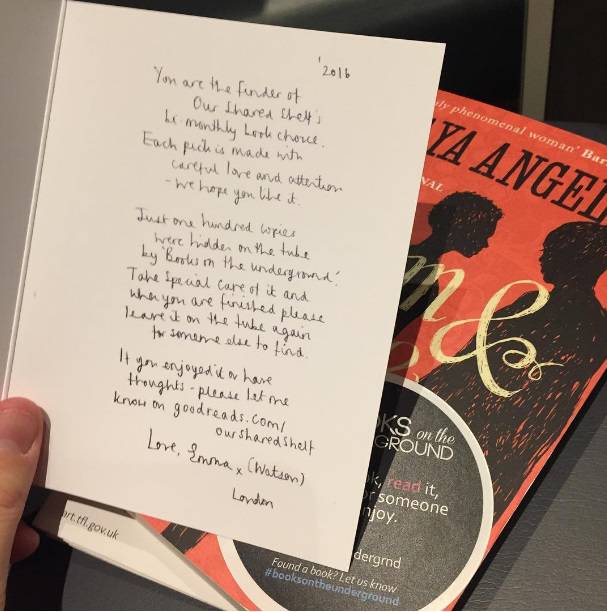 '2016
You are the finder of
Our Shared Shelf's
bi monthly book choice.
Each pick is made with
careful love and attention
- we hope you like it.
Just one hundred copies
were hidden on the tube
by 'Books on the underground'.
Take special care of it and
when you are finished please
leave it on the tube again
for someone else to find.
If you enjoyed it or have
thoughts - please let me
know on goodreads.com/
oursharedshelf
Love, Emma x (Watson)
London
phenomenal woman'
YA ANGEL
NAL
m &
OKS on the
GROUND
k, read it,
or someone
njoy.
dergrnd
Found a book? Let us know
#booksontheunderground
art.tfl.gov.uk